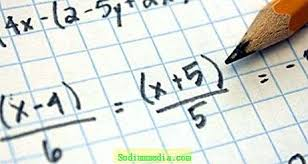 4x-(2-5y+2
(x-4)/6 = (x+5)/5 = -
Sodiummedia.com